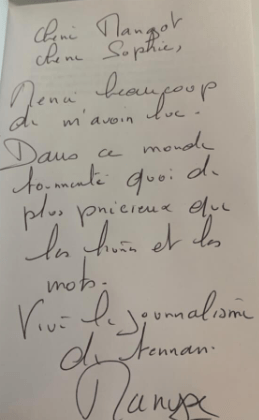 chère Margot
chère Sophie,
Merci beaucoup
de m'avoir lue.
Dans ce monde
tourmenté quoi de
plus précieux que
les livres et les
mots.
Vive le journalisme
de terrain.